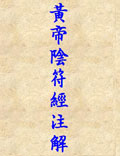 黃帝陰符經注解